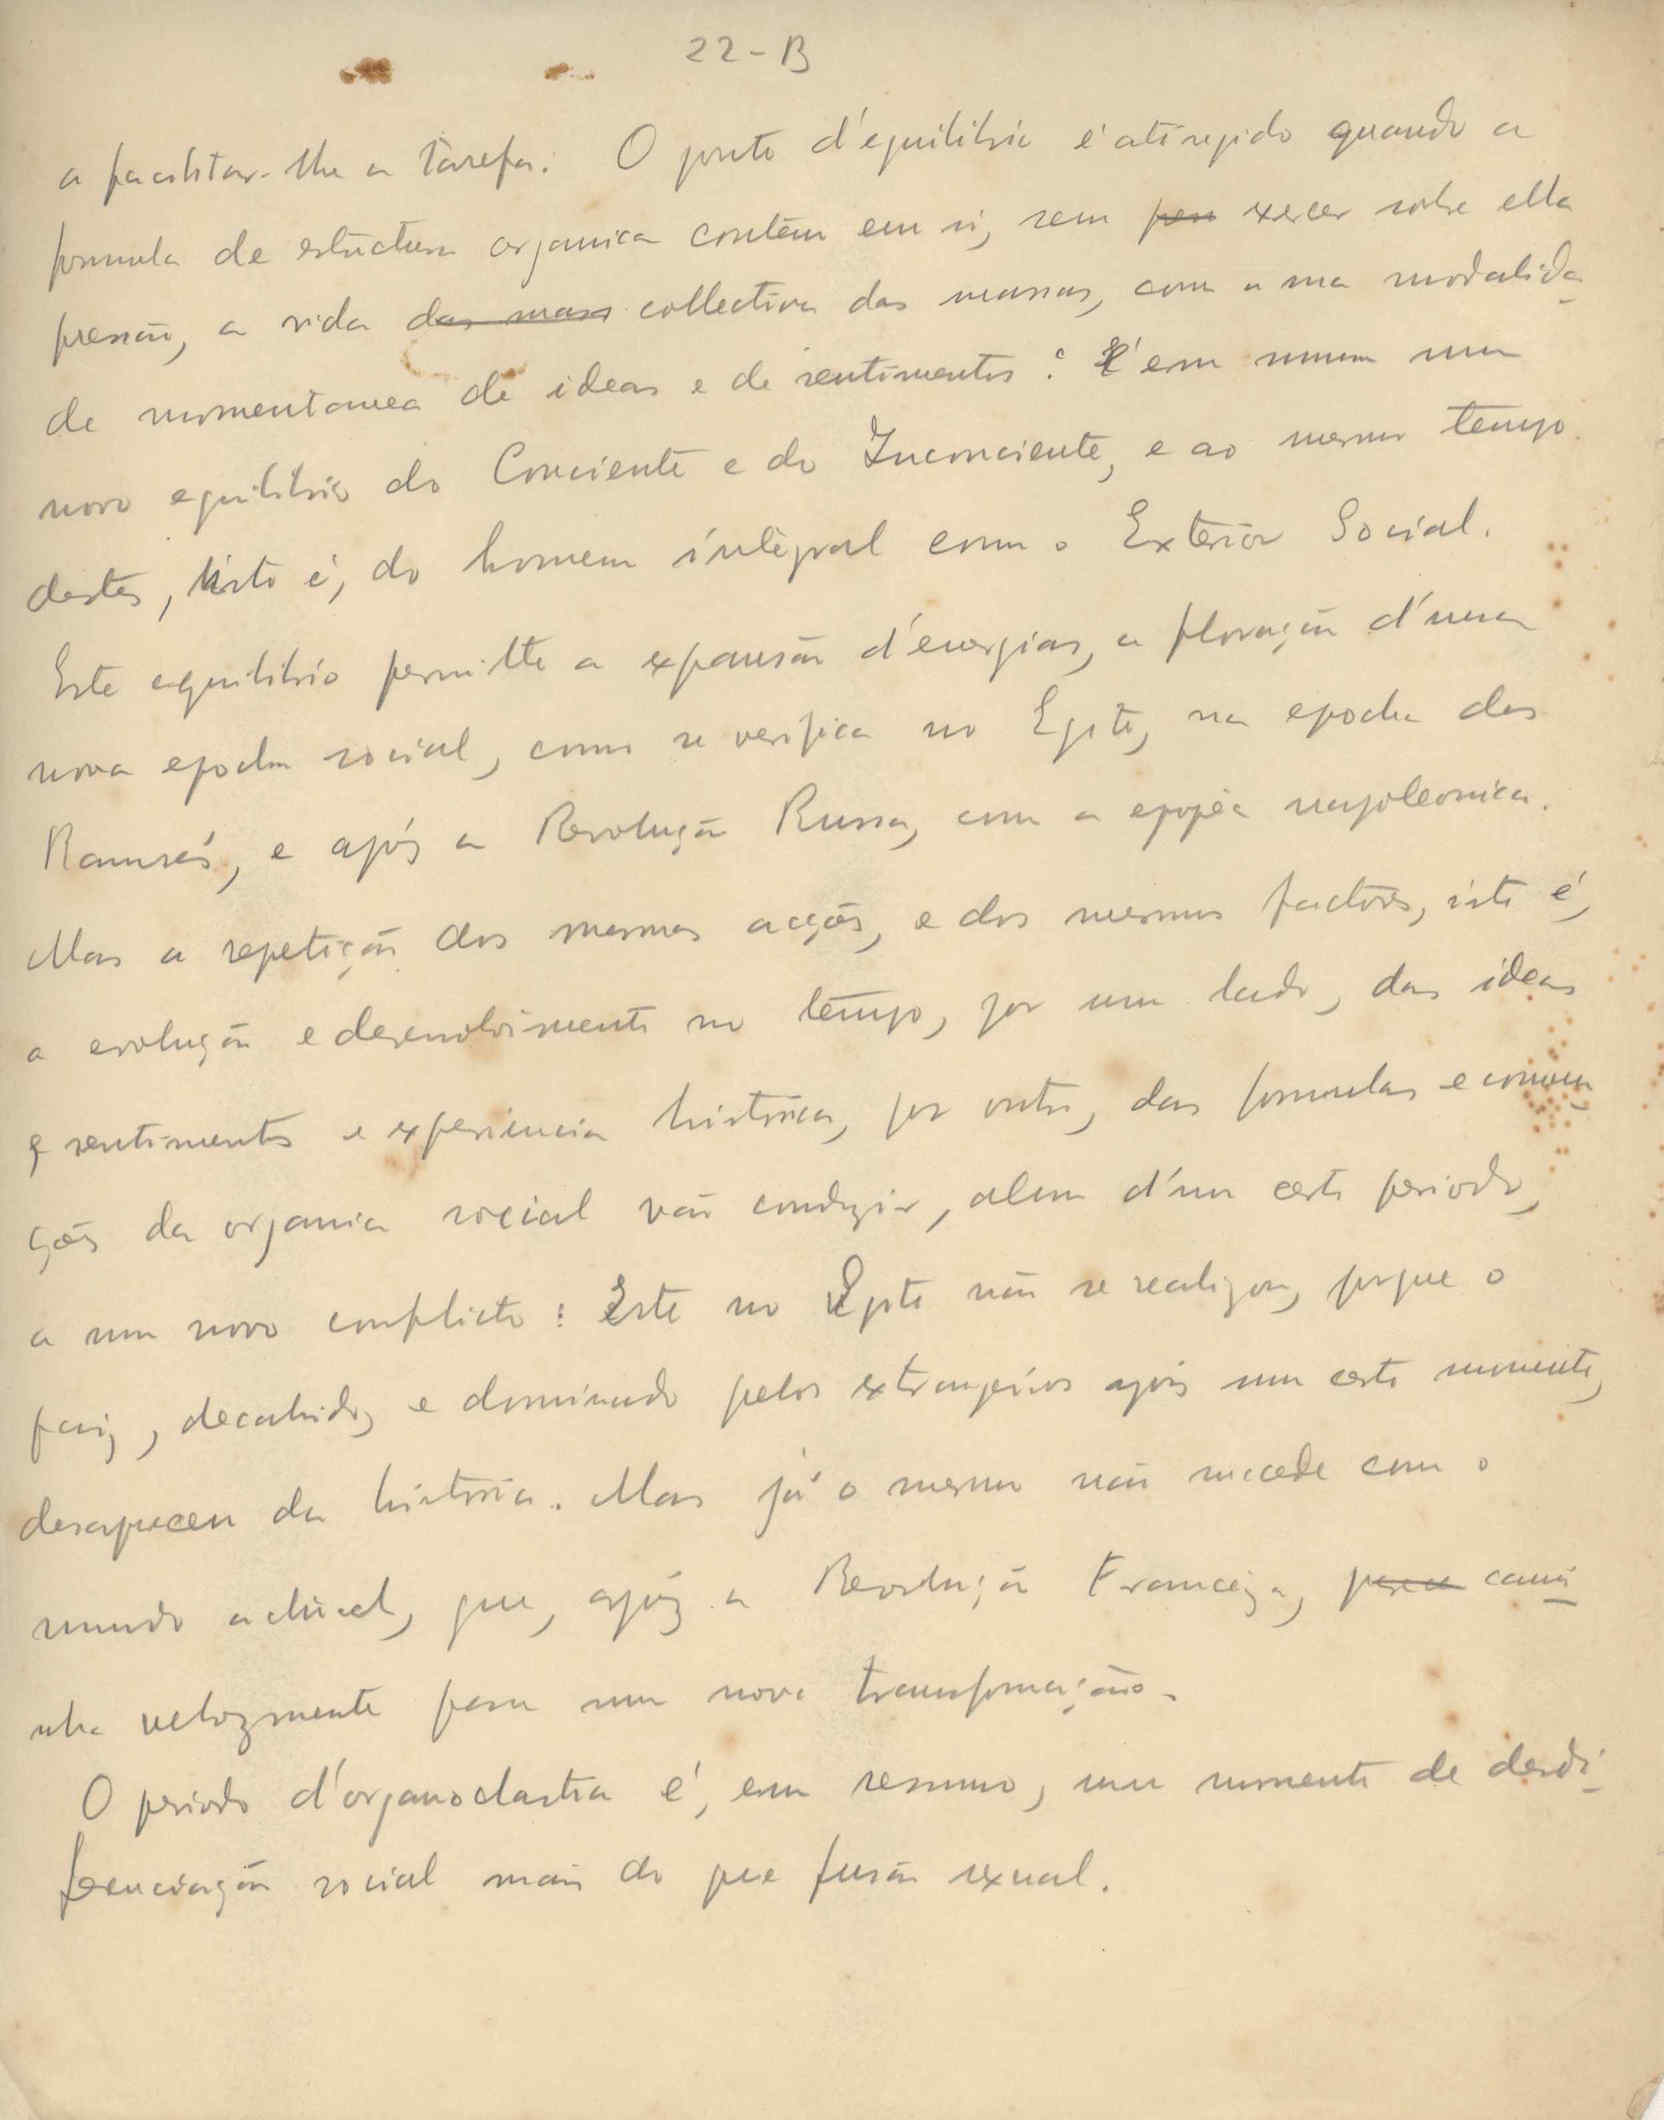 22-B
a facilitar-lhe a tarefa. O ponto d'equilibrio é atingido quando a
formula de estructura organica contém em si, sem pres exercer sobre ella
pressão, a vida das mass collectiva das massas, com a sua modalida
de momentanea de ideas e de sentimentos: É em summa um
novo equilibrio do Conciente e do Inconciente, e ao mesmo tempo
destes, isto é, do homem integral com o Exterior Social.
Este equilibrio permitte a expansão d'energias, a floração d'uma
nova epocha social, como se verifica no Egito, na epocha dos
Ramsés, e após a Revolução Russa, com a epopêa napoleonica.
Mas a repetição das mesmas acções, e dos mesmos factores, isto é,
a evolução e desenvolvimento no tempo, por um lado, das ideas
e sentimentos e experiencia historica, por outro, das formulas e conven
ções da organica social vão conduzir, alem d'um certo periodo,
a um novo conflicto: Este no Egito não se realizou, porque o
paiz, decahido, e dominado pelos extrangeiros após um certo momento,
desapareceu da historia. Mas já o mesmo não succede com o
mundo actual, que, após a Revolução Franceza, para cami
nha velozmente para uma nova transformação.
O periodo d'organoclastia é, em resumo, um momento de desdi
ferenciação social mais do que fusão sexual.